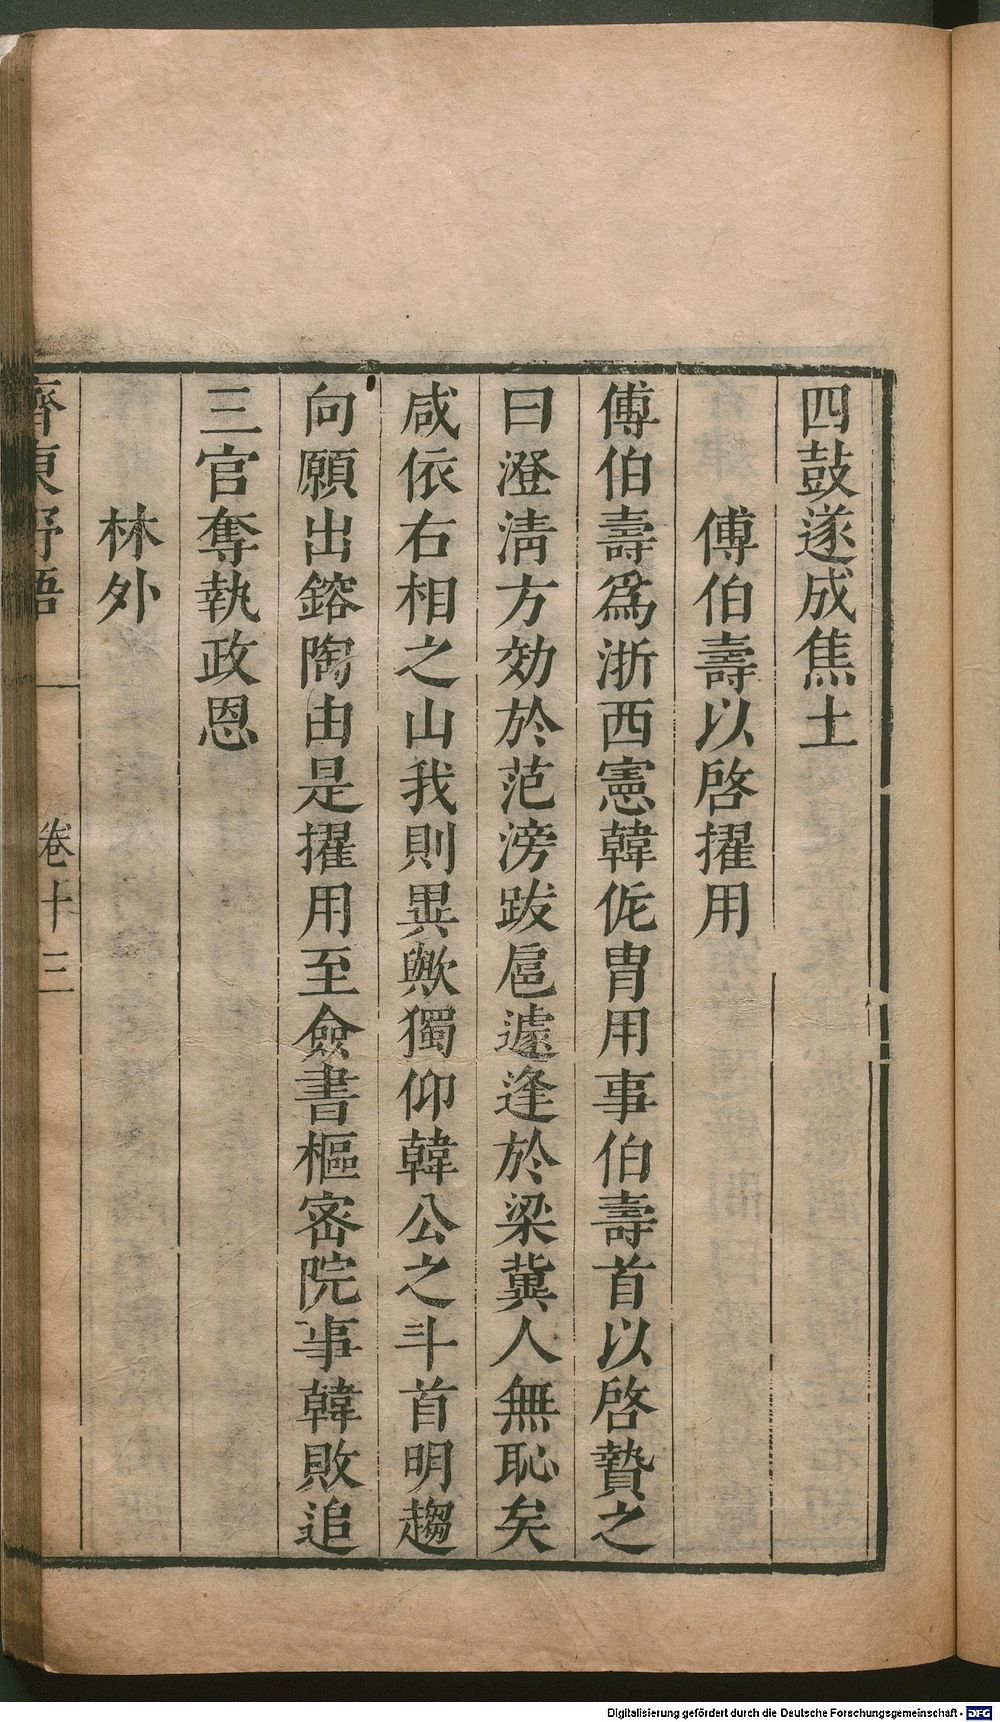 四鼓遂成焦土
傅伯壽以啓擢用
傅伯壽爲浙西憲韓侂胄用事伯壽首以啓贄之
曰澄淸方効於范滂跋扈遽逢於梁冀人無恥矣
咸依右相之山我則異歟獨仰韓公之斗首明趨
向願出鎔陶由是擢用至僉書樞宻院事韓敗追
三官奪執政恩
林外
齊東野語
卷十三
Digitalisierung gefördert durch die Deutsche Forschungsgemeinschaft - DFG